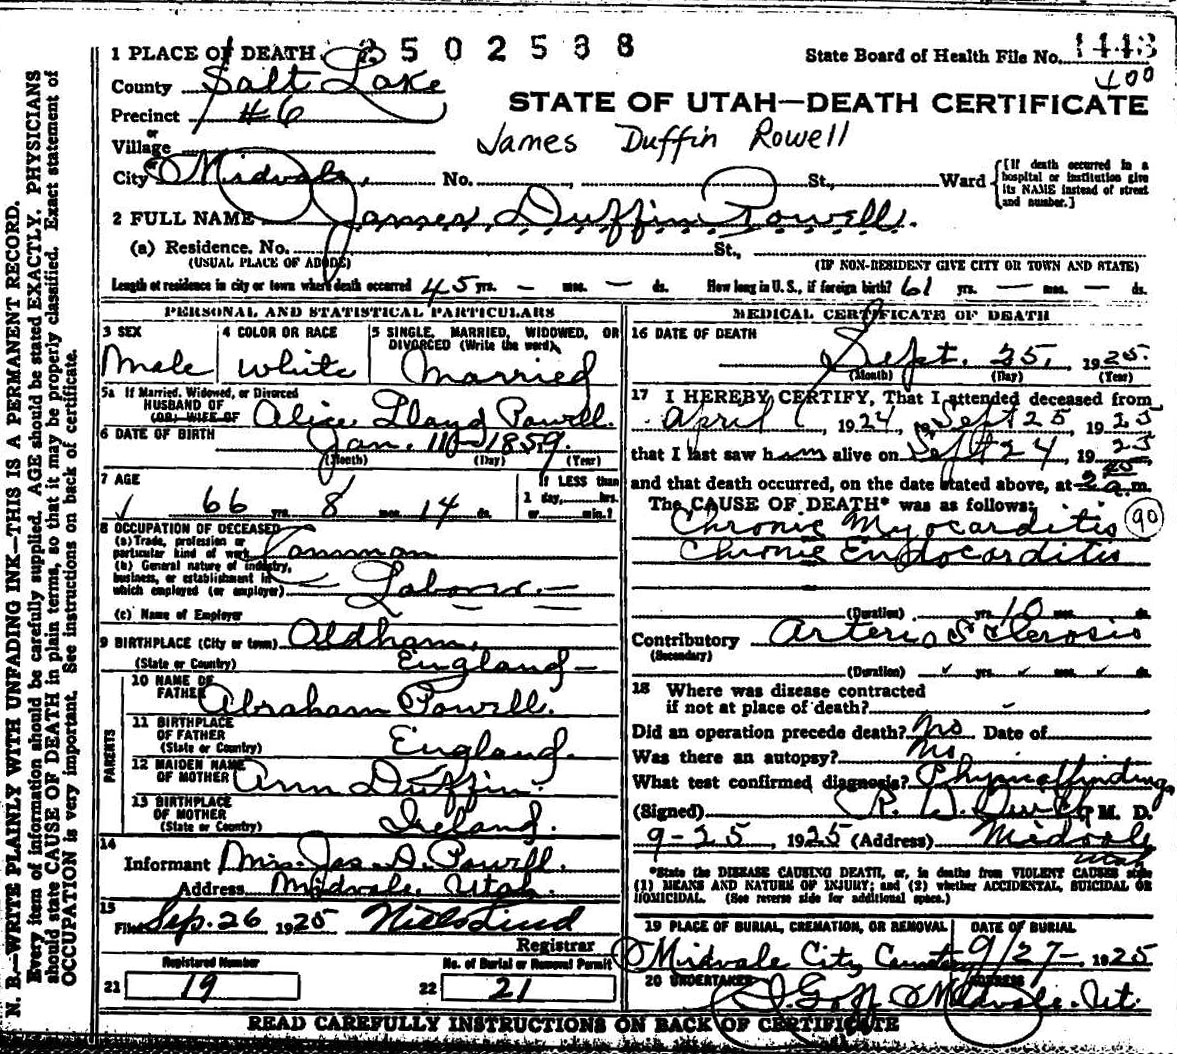 1 PLACE OF DEATH 2502538 State Board of Health File No. 1443
County Salt Lake 400
Precinct #6 STATE OF UTAH—DEATH CERTIFICATE
or
Village James Duffin Rowell
City Midvale, No. St., Ward {[If death occurred in a hospital or institution give its NAME instead of street and number.]
2 FULL NAME James Duffin Powell.
(a) Residence. No. St.,
(USUAL PLACE OF ABODE) (IF NON-RESIDENT GIVE CITY OR TOWN AND STATE)
Length of residence in city or town where death occurred 45 yrs. — mos. — ds. How long in U. S., if foreign birth? 61 yrs. — mos. — ds.
PERSONAL AND STATISTICAL PARTICULARS
3 SEX 4 COLOR OR RACE 5 SINGLE, MARRIED, WIDOWED, OR DIVORCED (Write the word)
Male white Married
5a If Married, Widowed, or Divorced
HUSBAND OF
(OR) WIFE OF Alice Lloyd Powell.
6 DATE OF BIRTH Jan. 11—1859.
(Month) (Day) (Year)
7 AGE If LESS than
66 yrs. 8 mos. 14 ds. 1 day, hrs. or min.?
8 OCCUPATION OF DECEASED
(a) Trade, profession or
particular kind of work
(b) General nature of industry,
business, or establishment in
which employed (or employer) Labor
(c) Name of Employer
9 BIRTHPLACE (City or town) Oldham,
(State or Country) England—
PARENTS
10 NAME OF FATHER Abraham Powell.
11 BIRTHPLACE OF FATHER (State or Country) England.
12 MAIDEN NAME OF MOTHER Ann Duffin.
13 BIRTHPLACE OF MOTHER (State or Country) Ireland.
14
Informant Mrs. Jas. D. Powell.
Address Midvale, Utah.
15
Filed Sep. 26 1925 Niels Lind
Registrar
Registered Number No. of Burial or Removal Permit
21 19 22 21
MEDICAL CERTIFICATE OF DEATH
16 DATE OF DEATH
Sept. 25, 1925.
(Month) (Day) (Year)
17 I HEREBY CERTIFY, That I attended deceased from
April 1, 1924, to Sept 25 1925
that I last saw him alive on Sept 24, 1925,
and that death occurred, on the date stated above, at a.m.
The CAUSE OF DEATH* was as follows:
Chronic Myocarditis (90)
Chronic Endocarditis
(Duration) yrs. 10 mos. ds.
Contributory Arterio Sclerosis
(Secondary)
(Duration) yrs. mos. ds.
18 Where was disease contracted
if not at place of death?
Did an operation precede death? No Date of
Was there an autopsy? No
What test confirmed diagnosis?
(Signed) R. W. M. D.
9-25, 1925 (Address) Midvale
Utah
*State the DISEASE CAUSING DEATH, or, in deaths from VIOLENT CAUSES state
(1) MEANS AND NATURE OF INJURY; and (2) whether ACCIDENTAL, SUICIDAL OR
HOMICIDAL. (See reverse side for additional space.)
19 PLACE OF BURIAL, CREMATION, OR REMOVAL DATE OF BURIAL
Midvale City Cemetery 9/27— 1925
20 UNDERTAKER ADDRESS
Goff Midvale. Ut.
READ CAREFULLY INSTRUCTIONS ON BACK OF CERTIFICATE
N. B.—WRITE PLAINLY WITH UNFADING INK—THIS IS A PERMANENT RECORD.
Every item of information should be carefully supplied. AGE should be stated EXACTLY. PHYSICIANS
should state CAUSE OF DEATH in plain terms, so that it may be properly classified. Exact statement of
OCCUPATION is very important. See instructions on back of certificate.